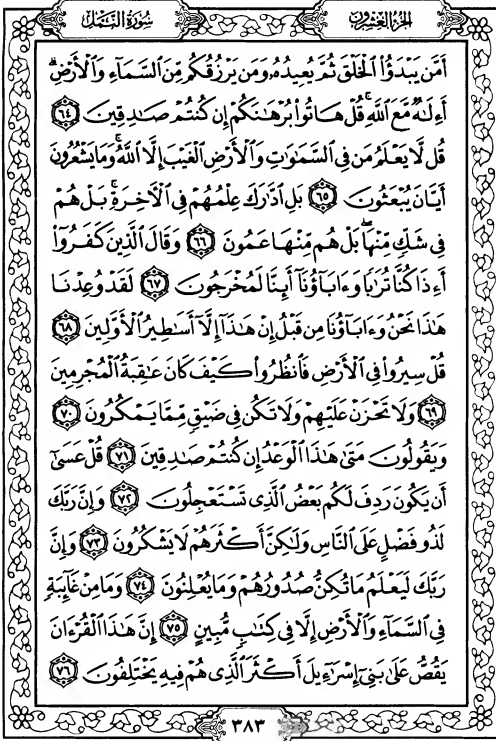 سُورَةُ النَّمْلِ
الجُزْءُ العِشْرُونَ
أَمَّن يَبْدَؤُا۟ ٱلْخَلْقَ ثُمَّ يُعِيدُهُۥ وَمَن يَرْزُقُكُم مِّنَ ٱلسَّمَآءِ وَٱلْأَرْضِ ۗ
أَءِلَٰهٌ مَّعَ ٱللَّهِ ۚ قُلْ هَاتُوا۟ بُرْهَٰنَكُمْ إِن كُنتُمْ صَٰدِقِينَ ٦٤
قُل لَّا يَعْلَمُ مَن فِى ٱلسَّمَٰوَٰتِ وَٱلْأَرْضِ ٱلْغَيْبَ إِلَّا ٱللَّهُ ۚ وَمَا يَشْعُرُونَ
أَيَّانَ يُبْعَثُونَ ٦٥ بَلِ ٱدَّٰرَكَ عِلْمُهُمْ فِى ٱلْءَاخِرَةِ ۚ بَلْ هُمْ
فِى شَكٍّ مِّنْهَا ۖ بَلْ هُم مِّنْهَا عَمُونَ ٦٦ وَقَالَ ٱلَّذِينَ كَفَرُوٓا۟
أَءِذَا كُنَّا تُرَٰبًا وَءَابَآؤُنَآ أَئِنَّا لَمُخْرَجُونَ ٦٧ لَقَدْ وُعِدْنَا
هَٰذَا نَحْنُ وَءَابَآؤُنَا مِن قَبْلُ إِنْ هَٰذَآ إِلَّآ أَسَٰطِيرُ ٱلْأَوَّلِينَ ٦٨
قُلْ سِيرُوا۟ فِى ٱلْأَرْضِ فَٱنظُرُوا۟ كَيْفَ كَانَ عَٰقِبَةُ ٱلْمُجْرِمِينَ
٦٩ وَلَا تَحْزَنْ عَلَيْهِمْ وَلَا تَكُن فِى ضَيْقٍ مِّمَّا يَمْكُرُونَ ٧٠
وَيَقُولُونَ مَتَىٰ هَٰذَا ٱلْوَعْدُ إِن كُنتُمْ صَٰدِقِينَ ٧١ قُلْ عَسَىٰٓ
أَن يَكُونَ رَدِفَ لَكُم بَعْضُ ٱلَّذِى تَسْتَعْجِلُونَ ٧٢ وَإِنَّ رَبَّكَ
لَذُو فَضْلٍ عَلَى ٱلنَّاسِ وَلَٰكِنَّ أَكْثَرَهُمْ لَا يَشْكُرُونَ ٧٣ وَإِنَّ
رَبَّكَ لَيَعْلَمُ مَا تُكِنُّ صُدُورُهُمْ وَمَا يُعْلِنُونَ ٧٤ وَمَا مِنْ غَآئِبَةٍ
فِى ٱلسَّمَآءِ وَٱلْأَرْضِ إِلَّا فِى كِتَٰبٍ مُّبِينٍ ٧٥ إِنَّ هَٰذَا ٱلْقُرْءَانَ
يَقُصُّ عَلَىٰ بَنِىٓ إِسْرَٰٓءِيلَ أَكْثَرَ ٱلَّذِى هُمْ فِيهِ يَخْتَلِفُونَ ٧٦
٣٨٣